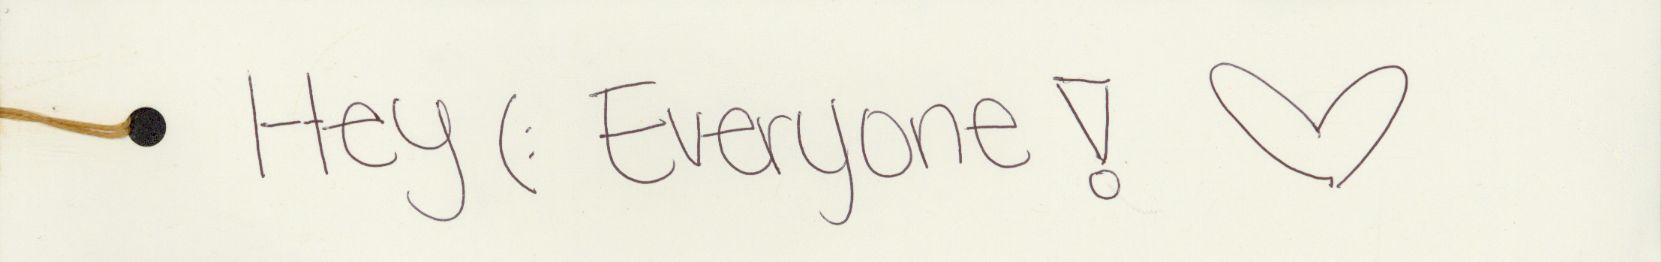 Hey (: Everyone! ♡